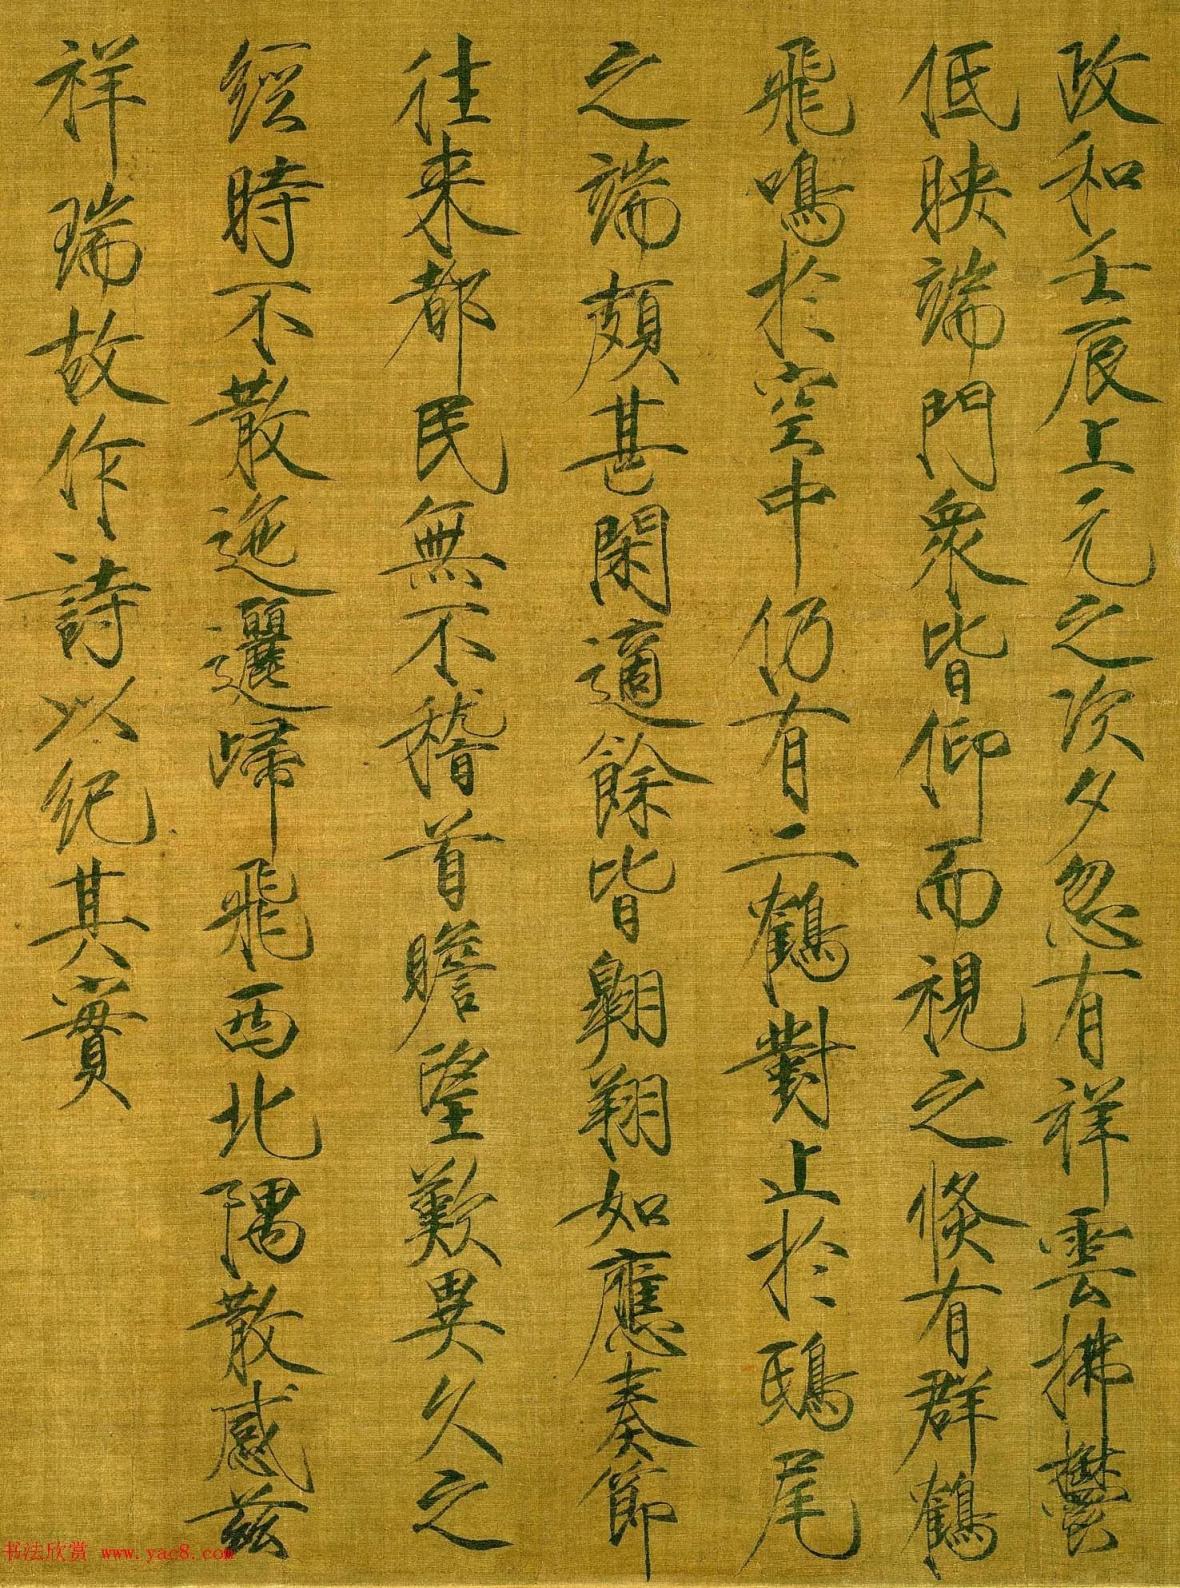 政和壬辰上元之次夕忽有祥雲拂鬱
低映端門衆皆仰而視之倐有群鶴
飛鳴於空中仍有二鶴對止於鴟尾
之端頗甚閑適餘皆翱翔如應奏節
往來都民無不稽首瞻望歎異久之
經時不散迤邐歸飛西北隅散感兹
祥瑞故作詩以紀其實
书法欣赏 www.yac8.com